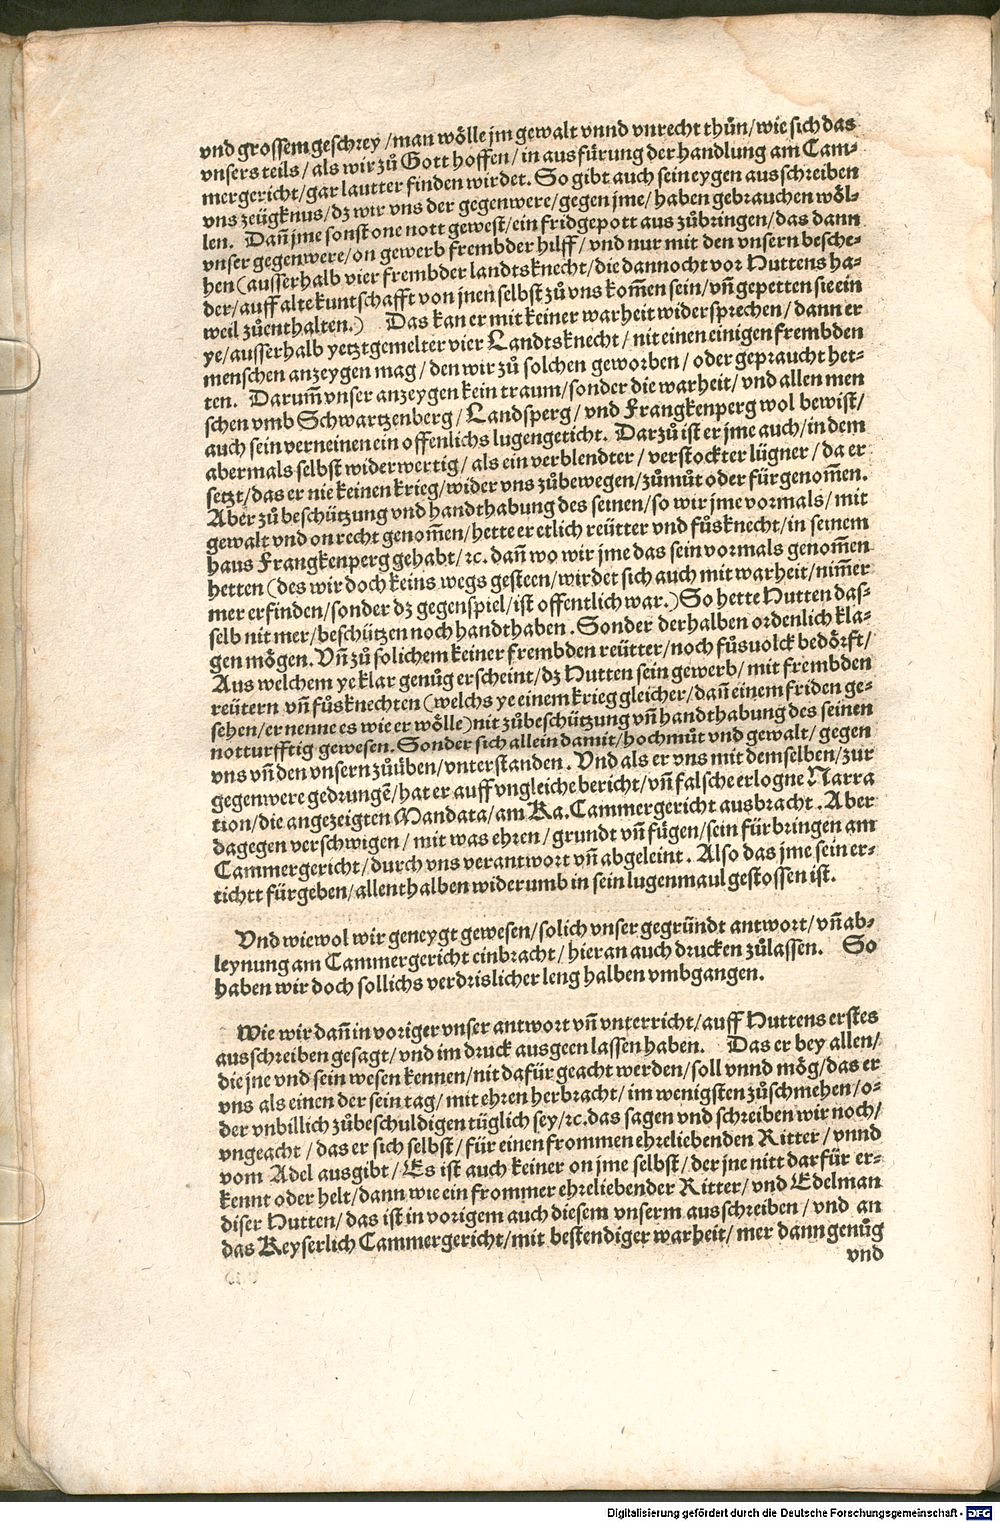 vnd grossem geschrey / man wölle jm gewalt vnnd vnrecht thůn / wie sich das
vnsers teils / als wir zů Gott hoffen / in ausfürung der handlung am Cam-
mergericht / gar lautter finden wirdet. So gibt auch sein eygen ausschreiben
vns zeügknus / dz wir vns der gegenwere / gegen jme / haben gebrauchen wöl-
len. Dañ jme sonst one nott gewest / ein fridgepott aus zůbringen / das dann
vnser gegenwere / on gewerb frembder hilff / vnd nur mit den vnsern besche-
hen (ausserhalb vier frembder landtsknecht / die dannocht vor Huttens ha-
der / auff alte kuntschafft von jnen selbst zů vns kom̄en sein / vñ gepetten sie ein
weil zůenthalten.) Das kan er mit keiner warheit widersprechen / dann er
ye / ausserhalb yetztgemelter vier Landtsknecht / nit einen einigen frembden
menschen anzeygen mag / den wir zů solchen geworben / oder gepraucht het-
ten. Darum̄ vnser anzeygen kein traum / sonder die warheit / vnd allen men
schen vmb Schwartzenberg / Landsperg / vnd Frangkenperg wol bewist /
auch sein verneinen ein offenlichs lugengeticht. Darzů ist er jme auch / in dem
abermals selbst widerwertig / als ein verblendter / verstockter lügner / da er
setzt / das er nie keinen krieg / wider vns zůbewegen / zůmůt oder fürgenom̄en.
Aber zů beschützung vnd handthabung des seinen / so wir jme vormals / mit
gewalt vnd on recht genom̄en / hette er etlich reütter vnd fůsknecht / in seinem
haus Frangkenperg gehabt / ꝛc. dañ wo wir jme das sein vormals genom̄en
hetten (des wir doch keins wegs gesteen / wirdet sich auch mit warheit / nim̄er
mer erfinden / sonder dz gegenspiel / ist offentlich war.) So hette Hutten das-
selb nit mer / beschützen noch handthaben. Sonder derhalben ordenlich kla-
gen mögen. Vñ zů solichem keiner frembden reütter / noch fůsuolck bedörft /
Aus welchem ye klar genůg erscheint / dz Hutten sein gewerb / mit frembden
reütern vñ fůsknechten (welchs ye einem krieg gleicher / dañ einem friden ge-
sehen / er nenne es wie er wölle) nit zůbeschützung vñ handthabung des seinen
notturfftig gewesen. Sonder sich allein damit / hochmůt vnd gewalt / gegen
vns vñ den vnsern zůüben / vnterstanden. Vnd als er vns mit demselben / zur
gegenwere gedrungẽ / hat er auff vngleiche bericht / vñ falsche erlogne Narra
tion / die angezeigten Mandata / am Ka. Cammergericht ausbracht. Aber
dagegen verschwigen / mit was ehren / grundt vñ fůgen / sein fürbringen am
Cammergericht / durch vns verantwort vñ abgeleint. Also das jme sein er-
tichtt fürgeben / allenthalben widerumb in sein lugenmaul gestossen ist.
Vnd wiewol wir geneygt gewesen / solich vnser gegründt antwort / vñ ab-
leynung am Cammergericht einbracht / hieran auch drucken zůlassen. So
haben wir doch sollichs verdrislicher leng halben vmbgangen.
Wie wir dañ in voriger vnser antwort vñ vnterricht / auff Huttens erstes
ausschreiben gesagt / vnd im druck ausgeen lassen haben. Das er bey allen /
die jne vnd sein wesen kennen / nit dafür geacht werden / soll vnnd mög / das er
vns als einen der sein tag / mit ehren herbracht / im wenigsten zůschmehen / o-
der vnbillich zůbeschuldigen tüglich sey / ꝛc. das sagen vnd schreiben wir noch /
vngeacht / das er sich selbst / für einen frommen ehreliebenden Ritter / vnnd
vom Adel ausgibt / Es ist auch keiner on jme selbst / der jne nitt darfür er-
kennt oder helt / dann wie ein frommer ehreliebender Ritter / vnd Edelman
diser Hutten / das ist in vorigem auch diesem vnserm ausschreiben / vnd an
das Keyserlich Cammergericht / mit bestendiger warheit / mer dann genůg
vnd
Digitalisierung gefördert durch die Deutsche Forschungsgemeinschaft - DFG